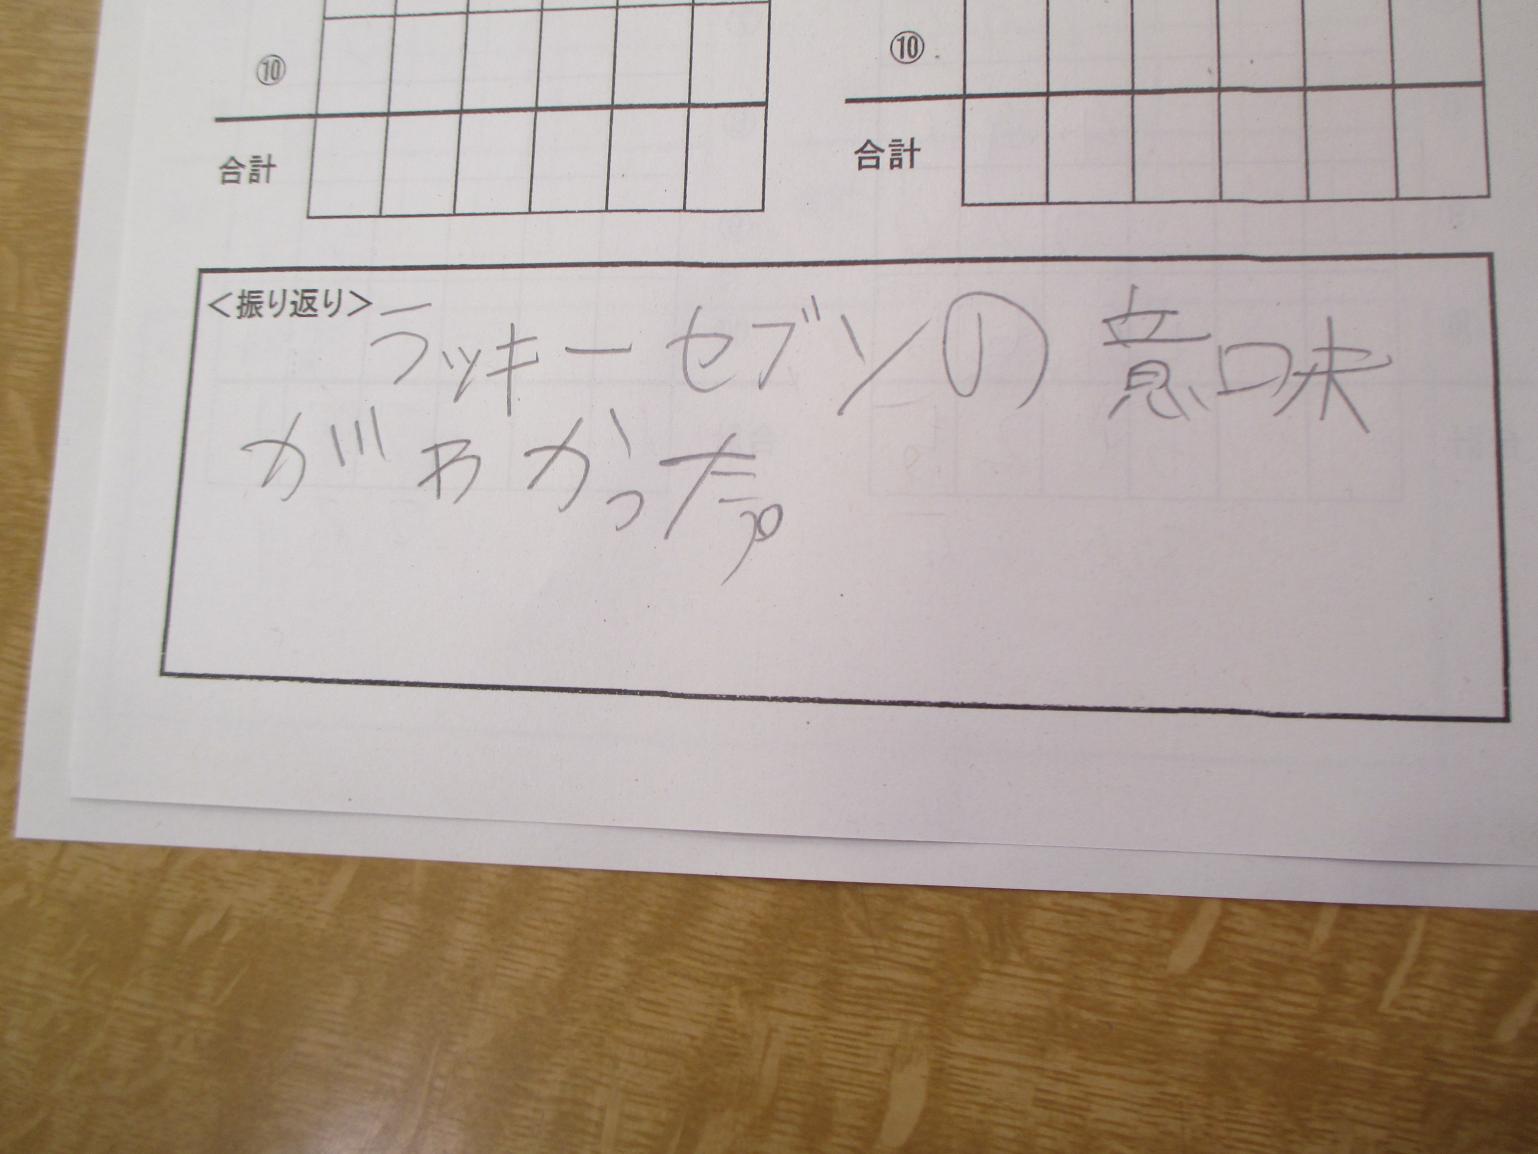 ⑩
合計
⑩
合計
<振り返り>
ラッキーセブンの意味
がわかった。